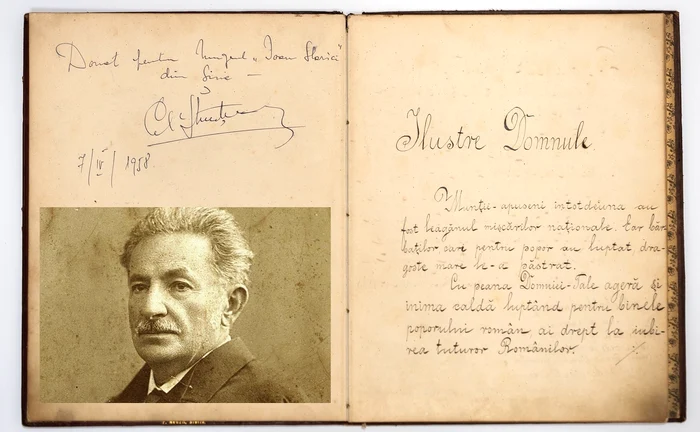 Donat pentru Muzeul „Ioan Slavici"
din Siria —
7/IV/1958.
Ilustre Domnule.
Munții-apuseni întotdeuna au
fost leagănul mișcărilor naționale. Iar băr-
baților, cari pentru popor au luptat, dra-
goste mare le-a păstrat.
Cu peana Domniei-Tale ageră și
inima caldă luptând pentru binele
poporului român, ai drept la iubi-
rea tuturor Românilor.